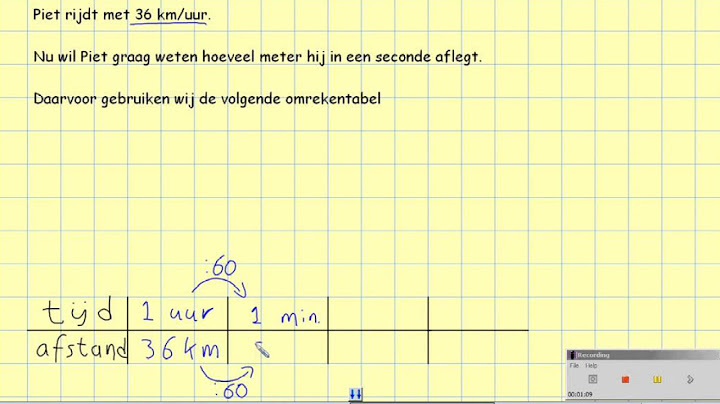 Piet rijdt met 36 km/uur.
Nu wil Piet graag weten hoeveel meter hij in een seconde aflegt.
Daarvoor gebruiken wij de volgende omrekentabel
:60
tijd 1 uur 1 min.
afstand 36 km
:60
Recording
File Help
00:01:09